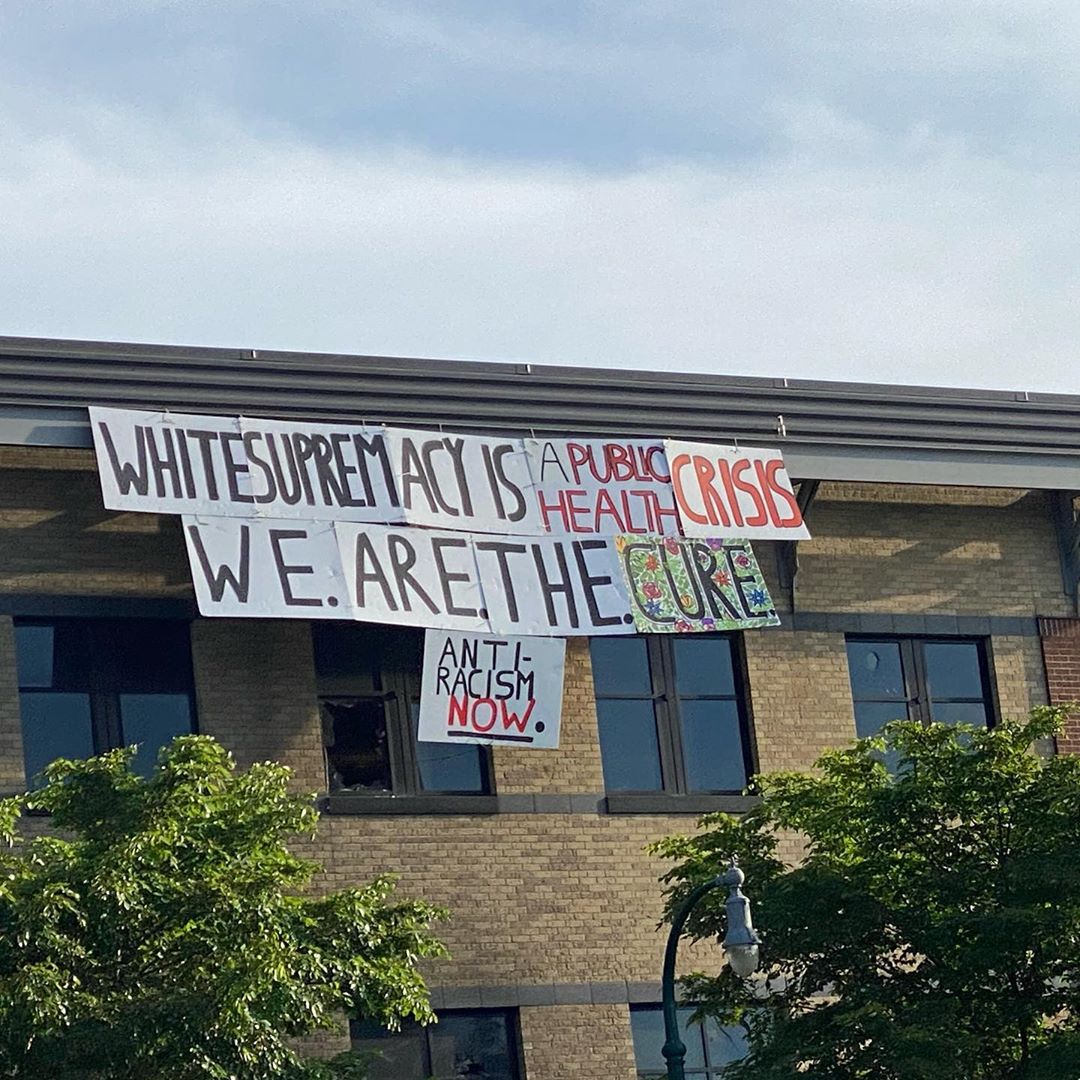 WHITE SUPREMACY IS A PUBLIC HEALTH CRISIS
WE. ARE. THE. CURE.
ANTI-
RACISM
NOW.